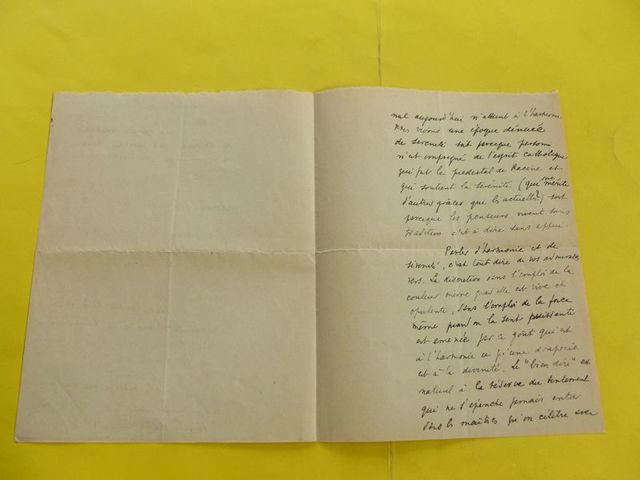 nul aujourd'hui n'atteint à l'harmonie.
Nous vivons une époque dénuée
de sérénité soit parceque personne
n'est imprégné de l'esprit catholique
qui fut le piedestal de Racine et
qui soutient la sérénité (qui mérite
d'autres grâces que les actuelles?) soit
parceque les penseurs vivent sans
tradition c'est à dire sans appui.
Parler d'harmonie et de
sérénité, c'est tout dire de vos admirables
vers. La discrétion dans l'emploi de la
couleur même quand elle est vive et
opulente, dans l'emploi de la force
même quand on la sent puissante
est amenée par ce goût qui est
à l'harmonie ce qu'une draperie
est à la divinité. Le "bien dire" est
naturel à la réserve du sentiment
qui ne s'épanche jamais entier
dans les maîtres qu'on célèbre avec